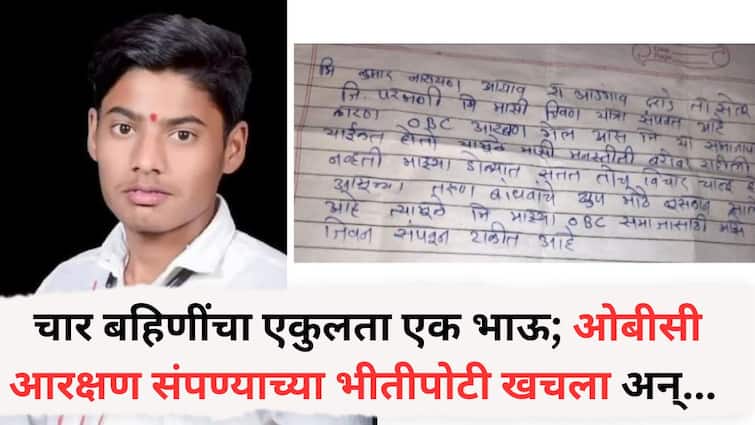 मि कुमार नारायण आघाव रा आडगाव दराडे ता सेलू
जि. परभणी मि माझी जिवन यात्रा संपवत आहे
कारण OBC आरक्षण गेल यास मि या
होतो माझी मनस्तीती बरोबर राहीली
नव्हती माझ्या डोक्यात सतत तोच विचार
तरुण बांधवाचे खुप मोठे नुकसान
आहे त्यामुळे मि माझ्या OBC समाजासाठी माझे
जिवन संपवून टाकीत आहे
चार बहिणींचा एकुलता एक भाऊ; ओबीसी
आरक्षण संपण्याच्या भीतीपोटी खचला अन्...